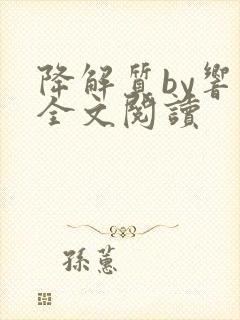 降解質by響
全文閱讀
孫蕙